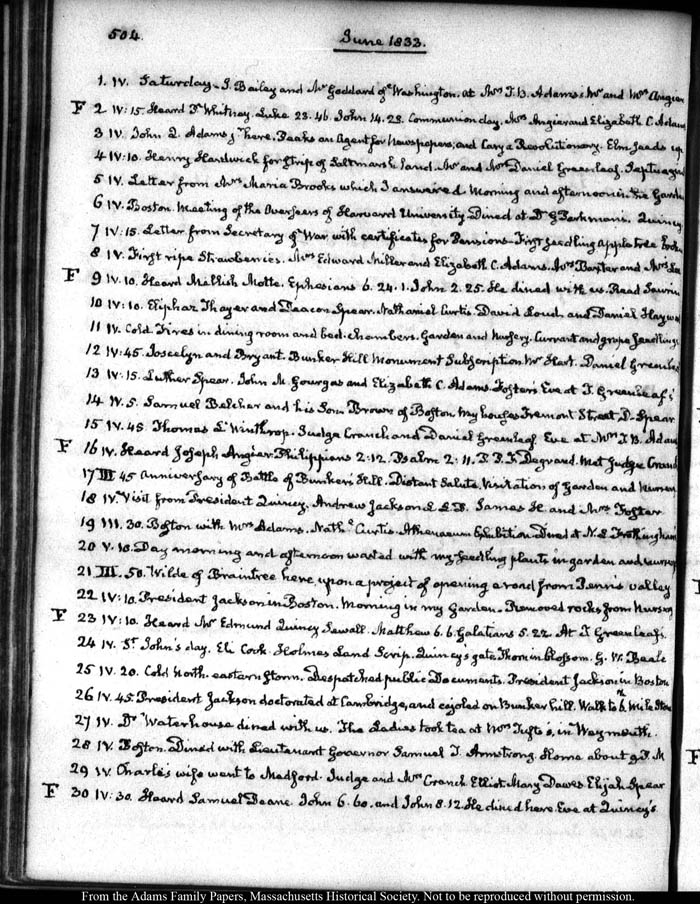 504.
June 1833.
1. IV. Saturday. J. Bailey and Mr Goddard of Washington. at Mrs T. B. Adams's Mr and Mrs Angier
F 2 IV:15. Heard Dr Whitney. Luke 23.46. John 14.28. Communion day. Mrs Angier and Elizabeth C. Adams
3 IV. John Q. Adams jr here. Beaks an Agent for Newspapers, and Cary a Revolutionary. Elm seeds up
4 IV:10. Henry Hardwick for strip of Saltmarsh land. Mr and Mrs Daniel Greenleaf.
5 IV. Letter from Mrs Maria Brooks which I answered. Morning and afternoon in the Garden
6 IV. Boston. Meeting of the Overseers of Harvard University. Dined at Dr G Parkman. Quincy
7 IV:15. Letter from Secretary of War with certificates for Pensions. First seedling apple tree
8 IV. First ripe Strawberries. Mrs Edward Miller and Elizabeth C. Adams. Mrs Baxter and Mrs
F 9 IV.10. Heard Mellish Motte. Ephesians 6.24. 1. John 2.25. He dined with us. Read
10 IV:10. Eliphaz Thayer and Deacon Spear. Nathaniel Curtis. David Loud, and Daniel
11 IV. Cold. Fires in dining room and bed-chambers. Garden and Nursery. Currant and grape seedlings
12 IV:45. Joscelyn and Bryant. Bunker Hill Monument Subscription Mr Hart. Daniel Greenleaf
13 IV:15. Luther Spear. John M. Gourgas and Elizabeth C. Adams. Foster's Eve at T. Greenleaf's
14 IV.5. Samuel Belcher and his Son. Brown of Boston. my houses Tremont Street. D. Spear
15 IV.45. Thomas L. Winthrop. Judge Cranch and Daniel Greenleaf. Eve at Mrs T. B. Adams
F 16 IV. Heard Joseph Angier. Philippians 2:12. Psalm 2:11. P. P. F. Degrand. Met Judge Cranch
17 III 45 Anniversary of Battle of Bunker's Hill. Distant Salute. Visitation of Garden and Nursery
18 IV. Visit from President Quincy. Andrew Jackson L.L.D. James H. and Mrs Foster
19 III.30. Boston with Mrs Adams. Nathl Curtis. Athenaeum Exhibition. Dined at N. L. Frothingham
20 V.10. Day morning and afternoon wasted with my seedling plants in garden and nursery
21 III.50. Wilde of Braintree here, upon a project of opening a road from Penn's valley
22 IV:10. President Jackson in Boston. Morning in my Garden. Removed rocks from Nursery
F 23 IV:10. Heard Mr Edmund Quincy Sewall. Matthew 6.6. Galatians 5.22. At T Greenleaf's.
24 IV. St John's day. Eli Cook. Holmes Land Scrip. Quincy's gate Thorn in blossom. G. W. Beale
25 IV.20. Cold North-eastern storm. Despatched public Documents. President Jackson in Boston
26 IV.45. President Jackson doctorated at Cambridge, and cajoled on Bunker hill. Walk to 6th Mile Stone
27 IV. Dr Waterhouse dined with us. The Ladies took tea at Mrs Tufts's, in Weymouth.
28 IV. Boston. Dined with Lieutenant Governor Samuel T. Armstrong. Home about 9 P.M
29 IV. Charles's wife went to Medford. Judge and Mrs Cranch. Elliot. Mary Dawes. Elijah Spear
F 30 IV:30. Heard Samuel Deane. John 6.60. and John 8.12. He dined here. Eve at Quincy's
From the Adams Family Papers, Massachusetts Historical Society. Not to be reproduced without permission.